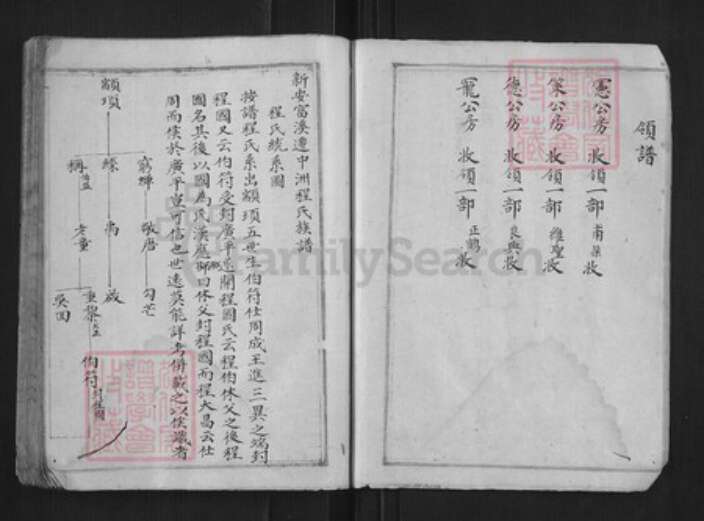 領譜
憲公房 收領一部
榮公房 收領一部 維聖收
德公房 收領一部 良典收
寵公房 收領一部 正鶴收
新安富溪遷中洲程氏族譜
程氏統系圖
按譜程氏系出顓頊五世生伯符仕周成王進三異之瑞封
程國又云伯符受封廣平遂開程國氏云程伯休父之後程
國名其後以國為氏漢應劭曰休父封程國而程大昌云仕
周而侯於廣平宜可信也世遠莫能詳考併載之以俟識者
顓頊
窮蟬 敬康 句芒
鯀 禹 啟
稱 老童 重黎 伯符 封程國
吳回
FamilySearch